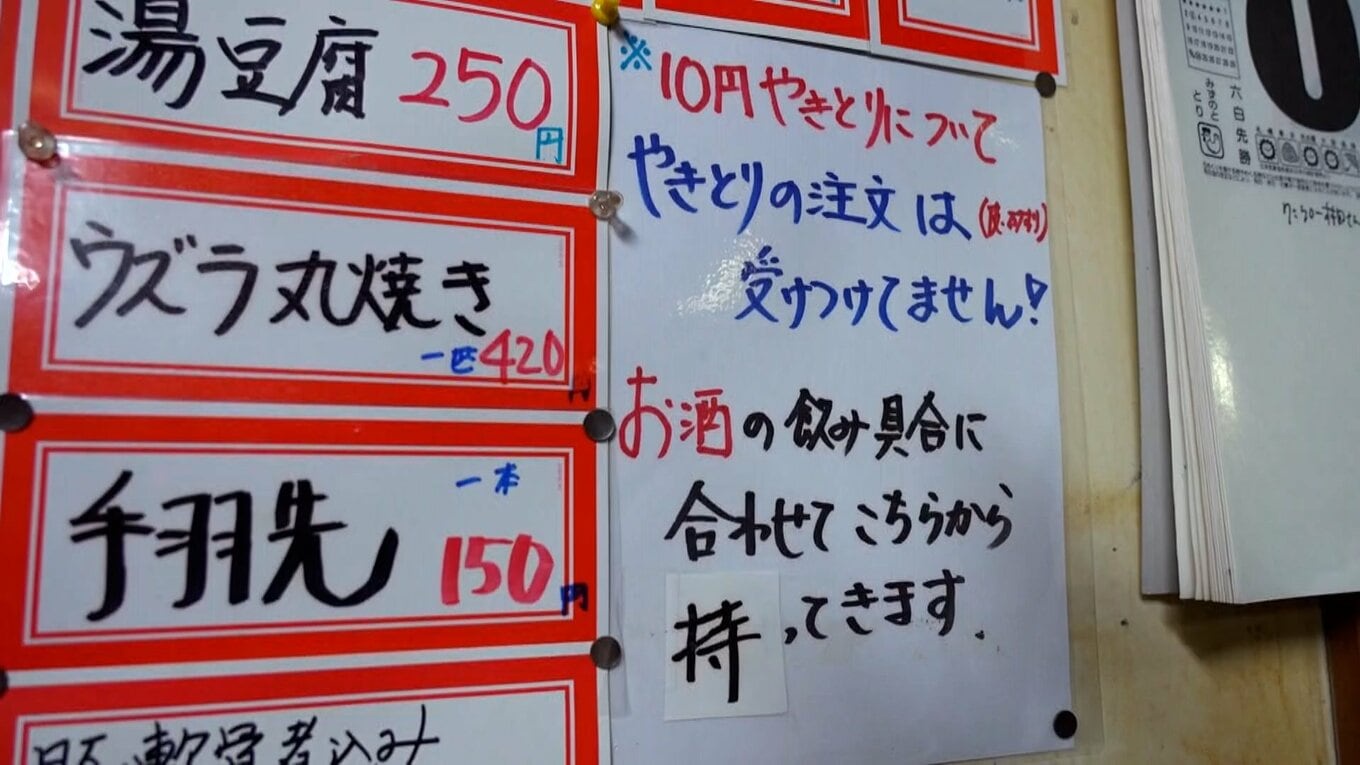 湯豆腐 250円
ウズラ丸焼き
一匹 420円
手羽先
一本
150円
軟骨煮込み
※10円やきとりについて
やきとりの注文は
受けつけてません!
お酒の飲み具合に
合わせてこちらから
持ってきます.
六白先勝
みずのと
とり